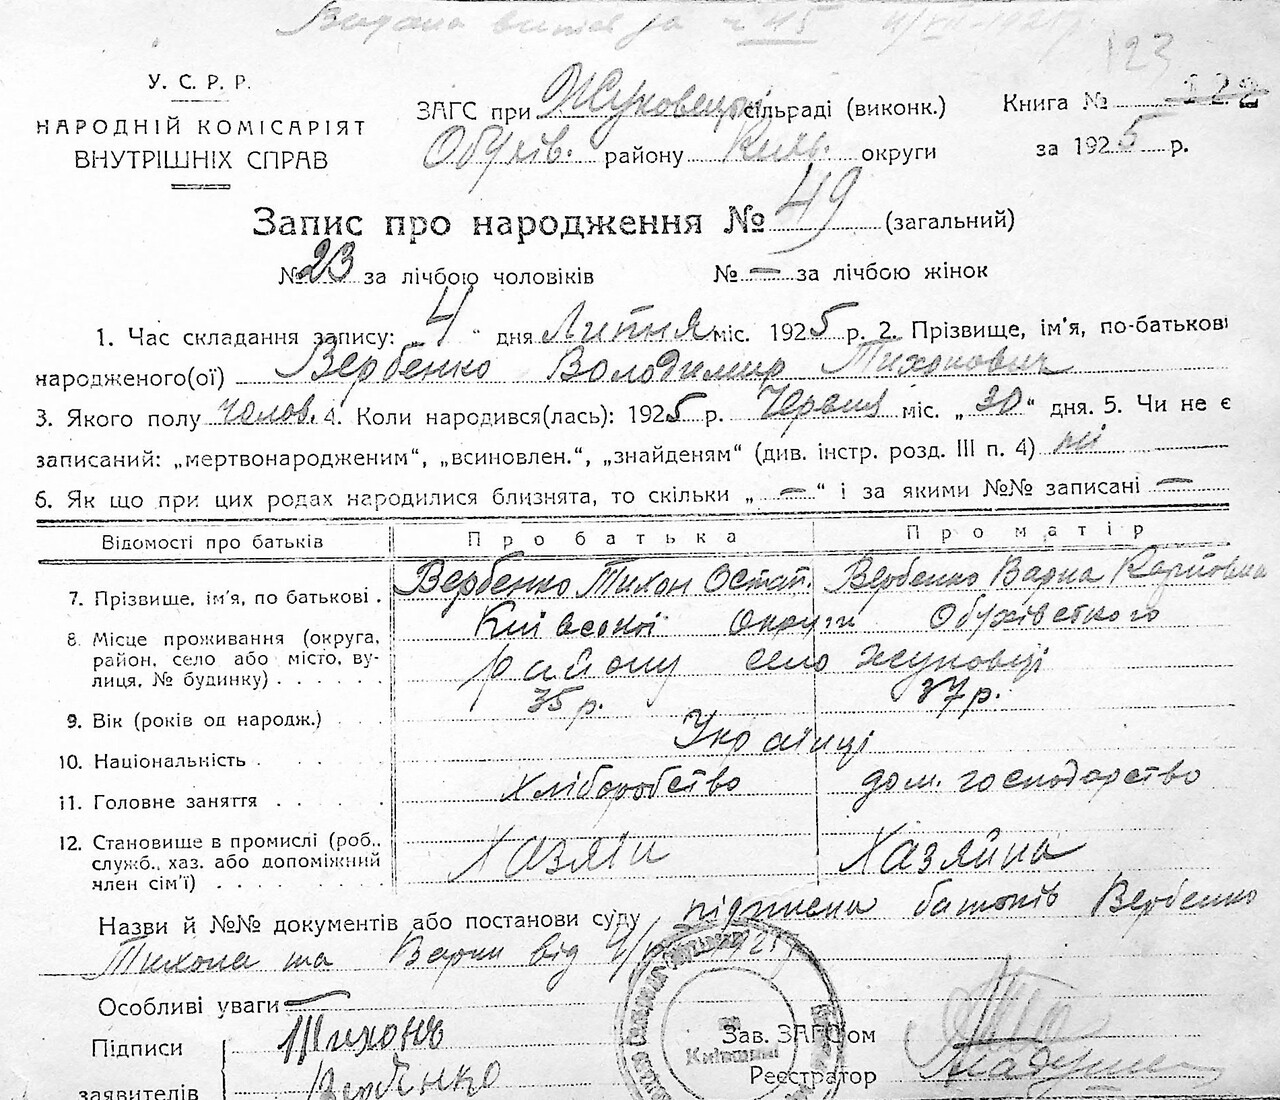 Видана витяг за ч 45
123
У. С. Р. Р.
НАРОДНІЙ КОМІСАРІЯТ
ВНУТРІШНІХ СПРАВ
ЗАГС при Жуковецькій сільраді (виконк.)
Обухів. району Київ. округи
Книга № 122
за 1925 р.
Запис про народження № 49 (загальний)
№ 23 за лічбою чоловіків № — за лічбою жінок
1. Час складання запису: 4 " дня Липня міс. 1925 р. 2. Прізвище, ім'я, по-батькові
народженого(ої) Вербенко Володимир Тихонович
3. Якого полу чолов. 4. Коли народився(лась): 1925 р. Червня міс. „ 30 “ дня. 5. Чи не є
записаний: „мертвонародженим“, „всиновлен.“, „знайденям“ (див. інстр. розд. III п. 4) ні
6. Як що при цих родах народилися близнята, то скільки „ — “ і за якими №№ записані —
Відомості про батьків Про батька Про матір
7. Прізвище, ім'я, по батькові . Вербенко Тихон Остап. Вербенко Варка Карповна
8. Місце проживання (округа, район, село або місто, вулиця, № будинку) . . . . . .
Київської округи Обухівсткого
району село Жуковці
9. Вік (років од народж.) . . . 35 р. 37 р.
10. Національність . Українці
11. Головне заняття . . . . . Хліборобство дом. господарство
12. Становище в промислі (роб., служб., хаз. або допоміжний член сім'ї) . . . . . . . Хазяїн Хазяйка
Назви й №№ документів або постанови суду підписка батьків Вербенко
Тихона та Варки від 4/
Особливі уваги —
Підписи
заявителів
Тихонъ
Вербенко
Київщині
Зав. ЗАГС'ом
Реєстратор